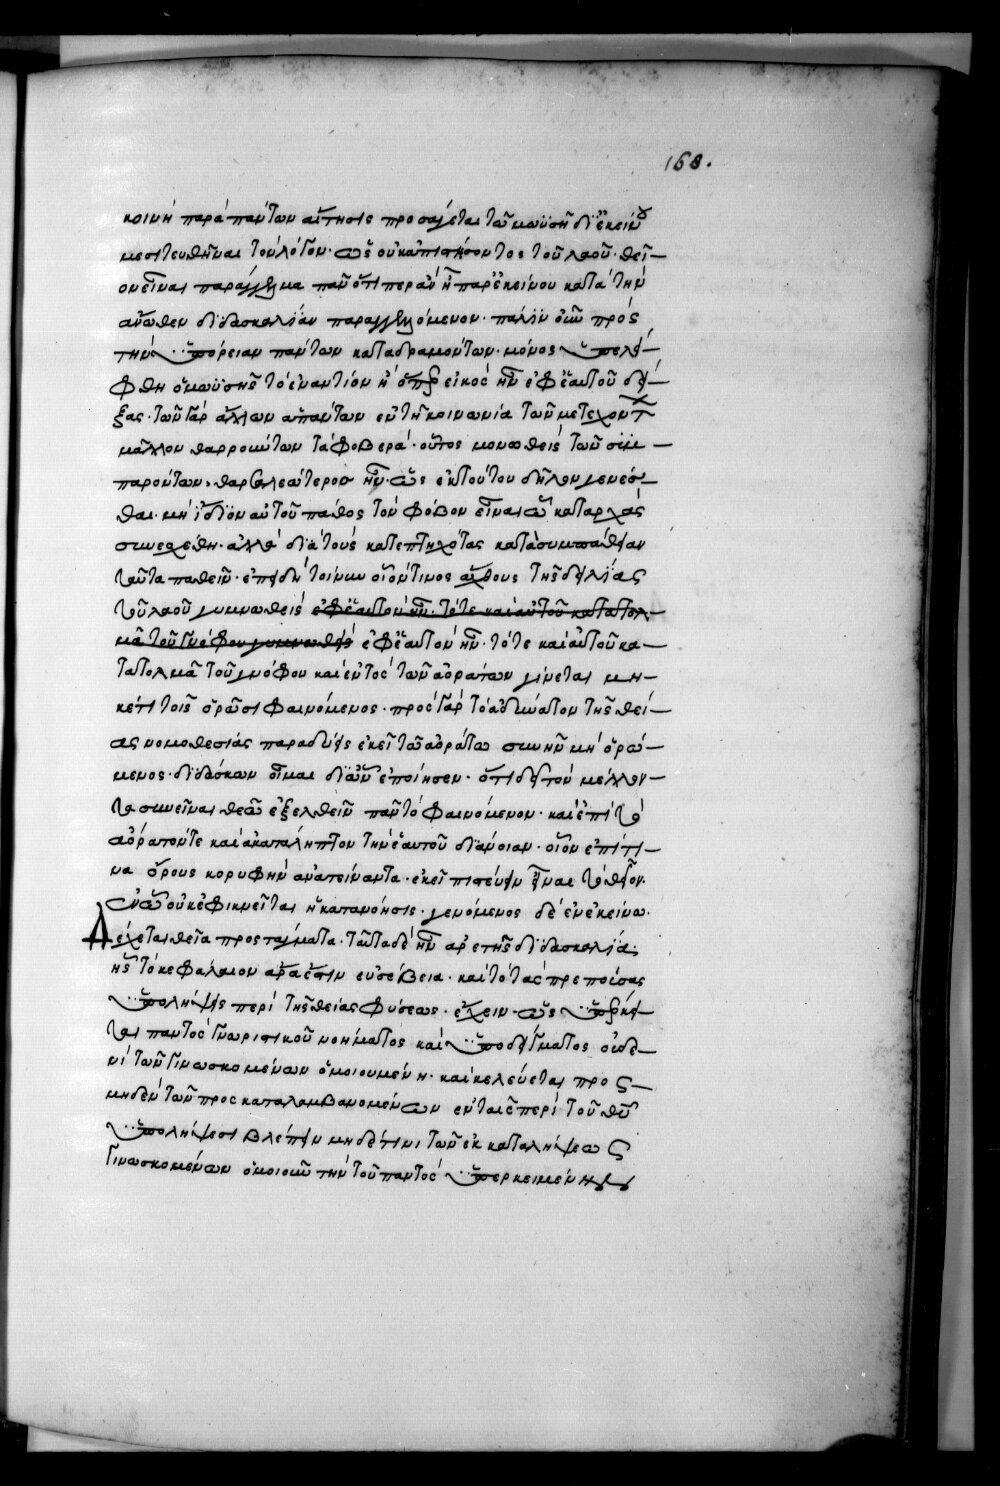 168.
κοινὴ παρὰ πάντων αἴτησις προσάγεται τῷ μωϋσῇ δι' ἐκείνου
μεσιτευθῆναι τὸν λόγον· ὡς οὐκ ἀπιστήσοντος τοῦ λαοῦ· θεῖ-
ον εἶναι παράγγελμα πᾶν ὅτι περ ἂν ᾖ παρ' ἐκείνου κατὰ τὴν
ἄνωθεν διδασκαλίαν παραγγελλόμενον· πάλιν οὖν πρὸς
τὴν ὑπώρειαν πάντων καταδραμόντων· μόνος ὑπελεί-
φθη ὁ μωϋσῆς τὸ ἐναντίον ἢ ὅπερ εἰκὸς ἦν ἐφ' ἑαυτοῦ δεί-
ξας· τῶν γὰρ ἄλλων ἁπάντων ἐν τῇ κοινωνίᾳ τῶν μετεχόντων
μᾶλλον θαρρούντων τὰ φοβερὰ· οὗτος μονωθεὶς τῶν συμ-
παρόντων, θαρσαλεώτερος ἦν· ὡς ἐκ τούτου δῆλον γενέσ-
θαι· μὴ ἴδιον αὐτοῦ πάθος τὸν φόβον εἶναι ᾧ καταρχὰς
συνεσχέθη· ἀλλὰ διὰ τοὺς κατεπτηχότας κατὰ συμπάθειαν
ταῦτα παθεῖν· ἐπειδὴ τοίνυν οἷόν τινος ἄχθους τῆς δειλίας
τοῦ λαοῦ γυμνωθεὶς ἐφ' ἑαυτὸν ἦν· τότε καὶ αὐτοῦ κατατολ-
μᾷ τοῦ γνόφου γυμνωθεὶς ἐφ' ἑαυτὸν ἦν· τότε καὶ αὐτοῦ κα-
τατολμᾷ τοῦ γνόφου καὶ ἐντὸς τῶν ἀοράτων γίνεται μη-
κέτι τοῖς ὁρῶσι φαινόμενος· πρὸς γὰρ τὸ ἄδυτον τῆς θεί-
ας νομοθεσίας παραδὺς ἐκεῖ τῷ ἀοράτῳ συνῆν μὴ ὁρώ-
μενος· διδάσκων οἶμαι δι' ὧν ἐποίησεν· ὅτι δεῖ τὸν μέλλον-
τα συνεῖναι θεῷ ἐξελθεῖν πᾶν τὸ φαινόμενον· καὶ ἐπὶ τὸ
ἀόρατόν τε καὶ ἀκατάληπτον τὴν ἑαυτοῦ διάνοιαν· οἷον ἐπί τι-
να ὄρους κορυφὴν ἀνατείναντα· ἐκεῖ πιστεύειν εἶναι τὸ θεῖον·
ἐν ᾧ οὐκ ἐφικνεῖται ἡ κατανόησις· γενόμενος δὲ ἐν ἐκείνω·
Δέχεται θεῖα προστάγματα· ταῦτα δὲ ἦν ἀρετῆς διδασκαλία·
ἧς τὸ κεφάλαιον ἆρα ἐστὶν εὐσέβεια· καὶ τὸ τὰς πρεπούσας
ὑπολήψεις περὶ τῆς θείας φύσεως· ἔχειν· ὡς ὑπερκεῖ-
ται παντὸς γνωριστικοῦ νοήματος καὶ ὑποδείγματος οὐδε-
νὶ τῶν γινωσκομένων ὁμοιουμένη· καὶ κελεύεται πρὸς-
μηδὲν τῶν προς καταλαμβανομένων ἐν ταῖς περὶ τοῦ θεοῦ
ὑπολήψεσι βλέπειν μηδέ τινι τῶν ἐκ καταλήψεως
γινωσκομένων ὁμοιοῦν τὴν τοῦ παντὸς ὑπερκειμένην